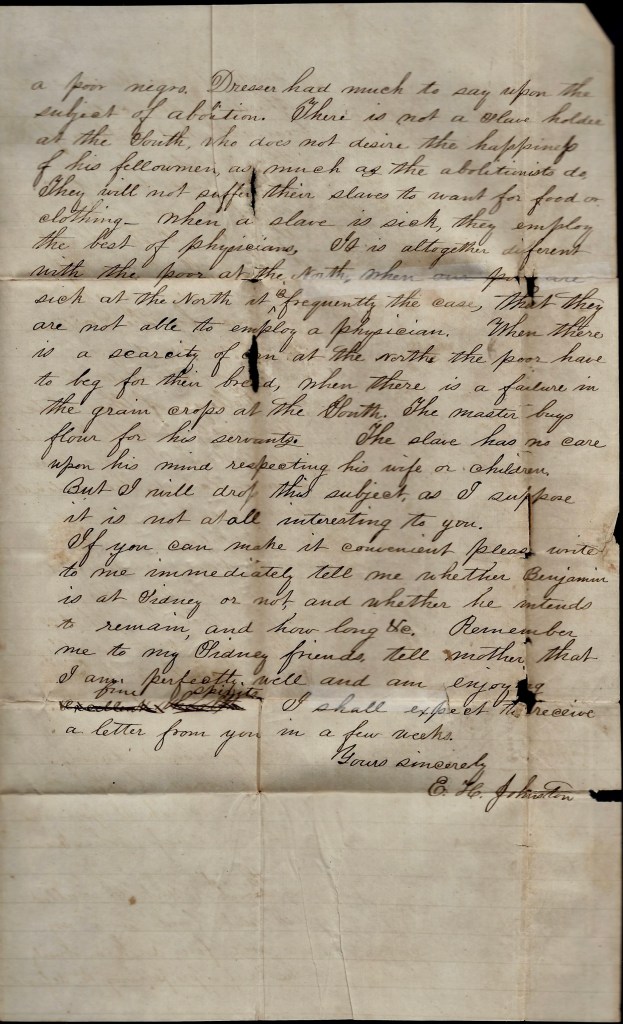 a poor negro. Dresser had much to say upon the
subject of abolition. There is not a slave holder
at the South, who does not desire the happiness
of his fellowmen, as much as the abolitionists do,
They will not suffer their slaves to want for food or
clothing – when a slave is sick, they employ
the best of physicians, It is altogether different
with the poor at the North, when our poor are
sick at the North it is frequently the case, that they
are not able to employ a physician. When there
is a scarcity of at the North the poor have
to beg for their bread, when there is a failure in
the grain crops at the South. The master buys
flour for his servants. The slave has no care
upon his mind respecting his wife or children.
But I will drop this subject, as I suppose
it is not at all interesting to you.
If you can make it convenient please write
to me immediately tell me whether Benjamin
is at Sidney or not, and whether he intends
to remain, and how long &c. Remember
me to my Sidney friends, tell mother, that
I am perfectly well and am enjoying
fine spirits
excellent health I shall expect to receive
a letter from you in a few weeks.
Yours sincerely
E. H. Johnston